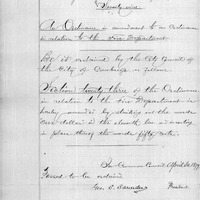 An Ordinance in amendment to an Ordinance
in relation to the Fire Department.
Be it ordained by the City Council of
the City of Cambridge as follows.
Section twenty three of the Ordinance
in relation to the Fire Department is
hereby amended by striking out the words
one dollar in the eleventh line and inserting
in place thereof the words fifty cents.
In Common Council April
Passed to be ordained
Geo. President